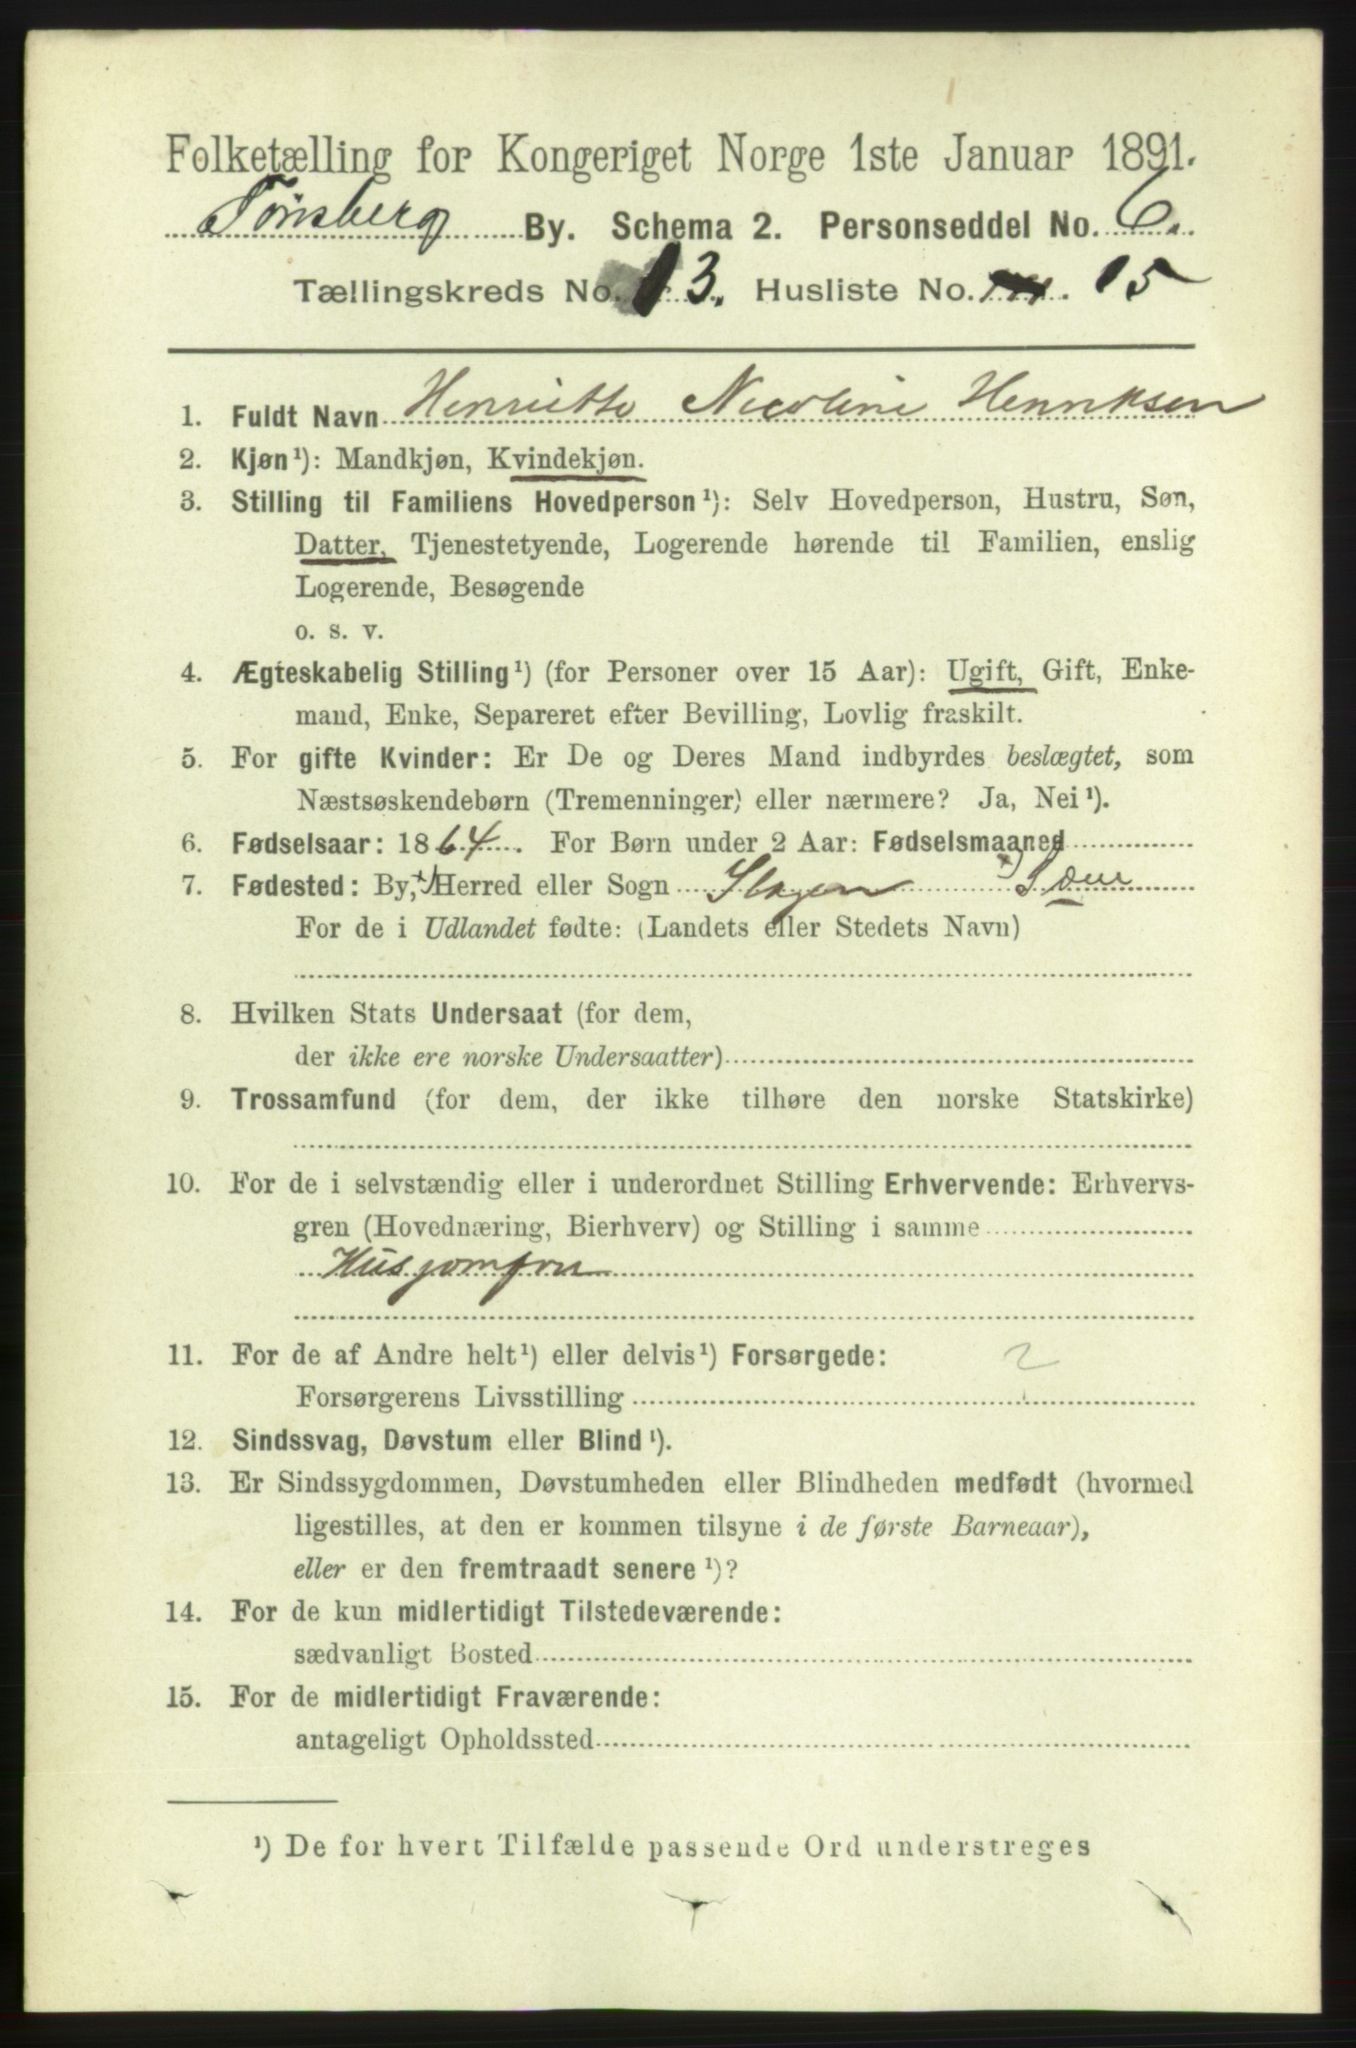 Folketælling for Kongeriget Norge 1ste Januar 1891.
Tønsberg By. Schema 2. Personseddel No. 6.
Tællingskreds No. 13. Husliste No. 15
1. Fuldt Navn Henriette Nicoline Henriksen
2. Kjøn¹): Mandkjøn, Kvindekjøn.
3. Stilling til Familiens Hovedperson¹): Selv Hovedperson, Hustru, Søn,
Datter, Tjenestetyende, Logerende hørende til Familien, enslig
Logerende, Besøgende
o. s. v.
4. Ægteskabelig Stilling¹) (for Personer over 15 Aar): Ugift, Gift, Enke-
mand, Enke, Separeret efter Bevilling, Lovlig fraskilt.
5. For gifte Kvinder: Er De og Deres Mand indbyrdes beslægtet, som
Næstsøskendebørn (Tremenninger) eller nærmere? Ja, Nei¹).
6. Fødselsaar: 1864. For Børn under 2 Aar: Fødselsmaaned
7. Fødested: By, Herred eller Sogn Slagen x) Søem
For de i Udlandet fødte: (Landets eller Stedets Navn)
8. Hvilken Stats Undersaat (for dem,
der ikke ere norske Undersaatter)
9. Trossamfund (for dem, der ikke tilhøre den norske Statskirke)
10. For de i selvstændig eller i underordnet Stilling Erhvervende: Erhvervs-
gren (Hovednæring, Bierhverv) og Stilling i samme
Husjomfru
11. For de af Andre helt¹) eller delvis¹) Forsørgede: 2
Forsørgerens Livsstilling
12. Sindssvag, Døvstum eller Blind¹).
13. Er Sindssygdommen, Døvstumheden eller Blindheden medfødt (hvormed
ligestilles, at den er kommen tilsyne i de første Barneaar),
eller er den fremtraadt senere¹)?
14. For de kun midlertidigt Tilstedeværende:
sædvanligt Bosted
15. For de midlertidigt Fraværende:
antageligt Opholdssted
¹) De for hvert Tilfælde passende Ord understreges